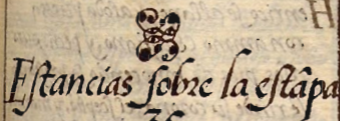 Estancias sobre la estãpa